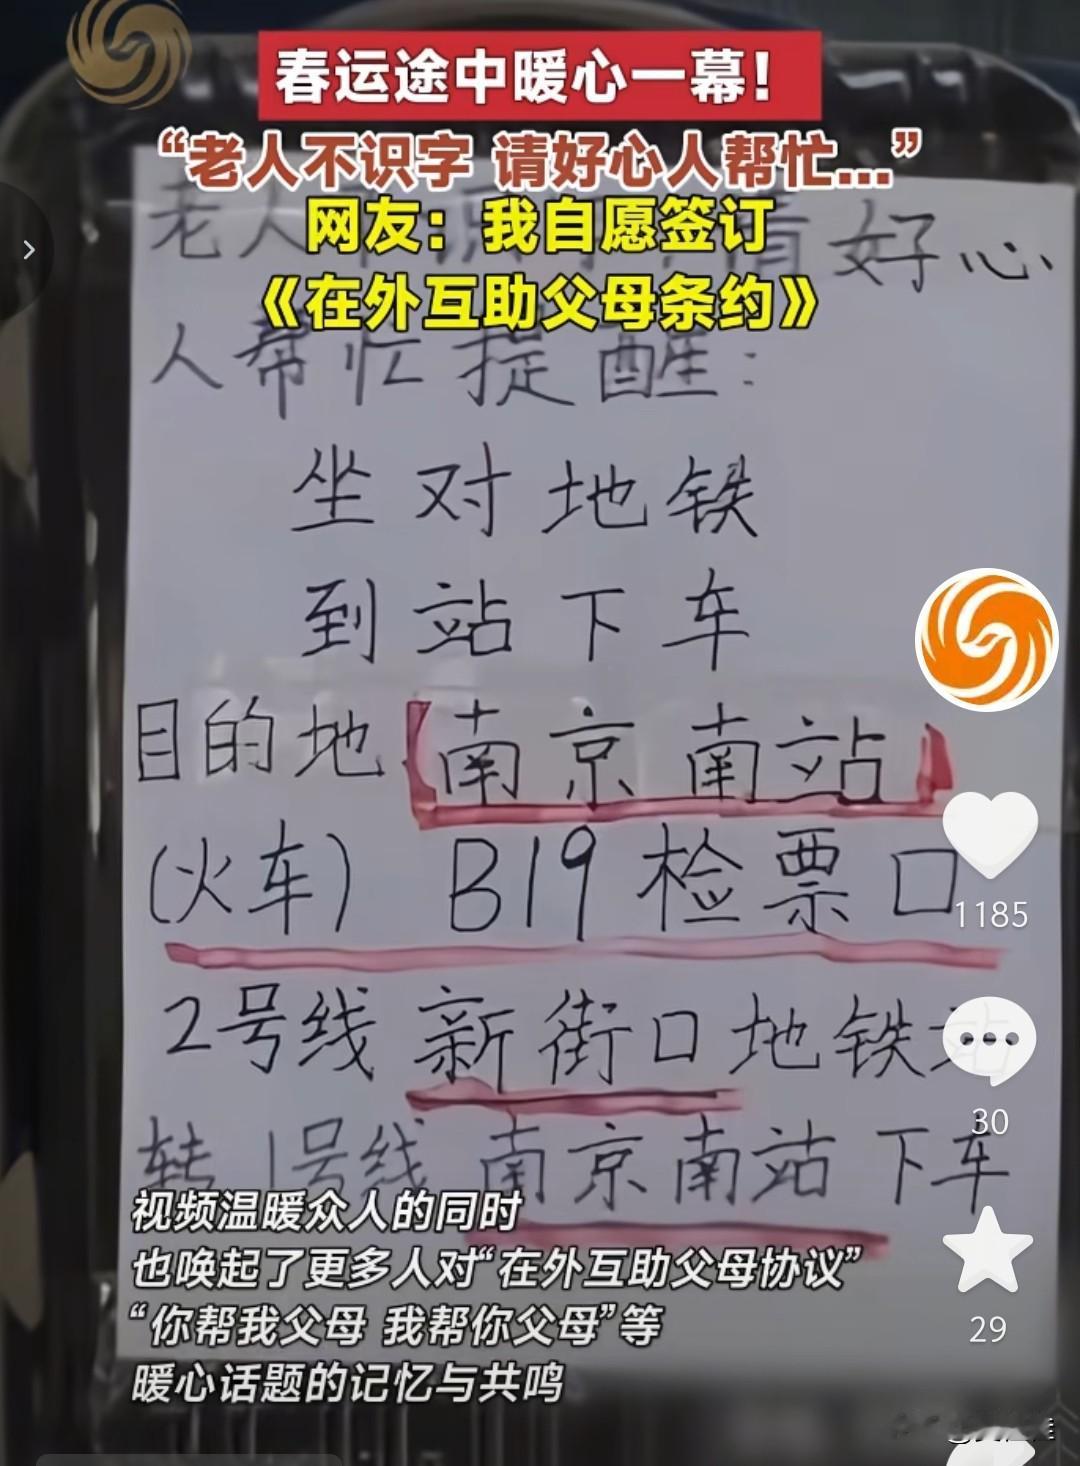 春运途中暖心一幕！
“老人不识字 请好心人帮忙...”
网友：我自愿签订
《在外互助父母条约》
老人 请好心
人帮忙提醒：
坐对地铁
到站下车
目的地 南京南站
(火车) B19检票口
1185
2号线 新街口地铁站
30
转1号线 南京南站下车
视频温暖众人的同时
也唤起了更多人对“在外互助父母协议”
“你帮我父母 我帮你父母”等
暖心话题的记忆与共鸣
29